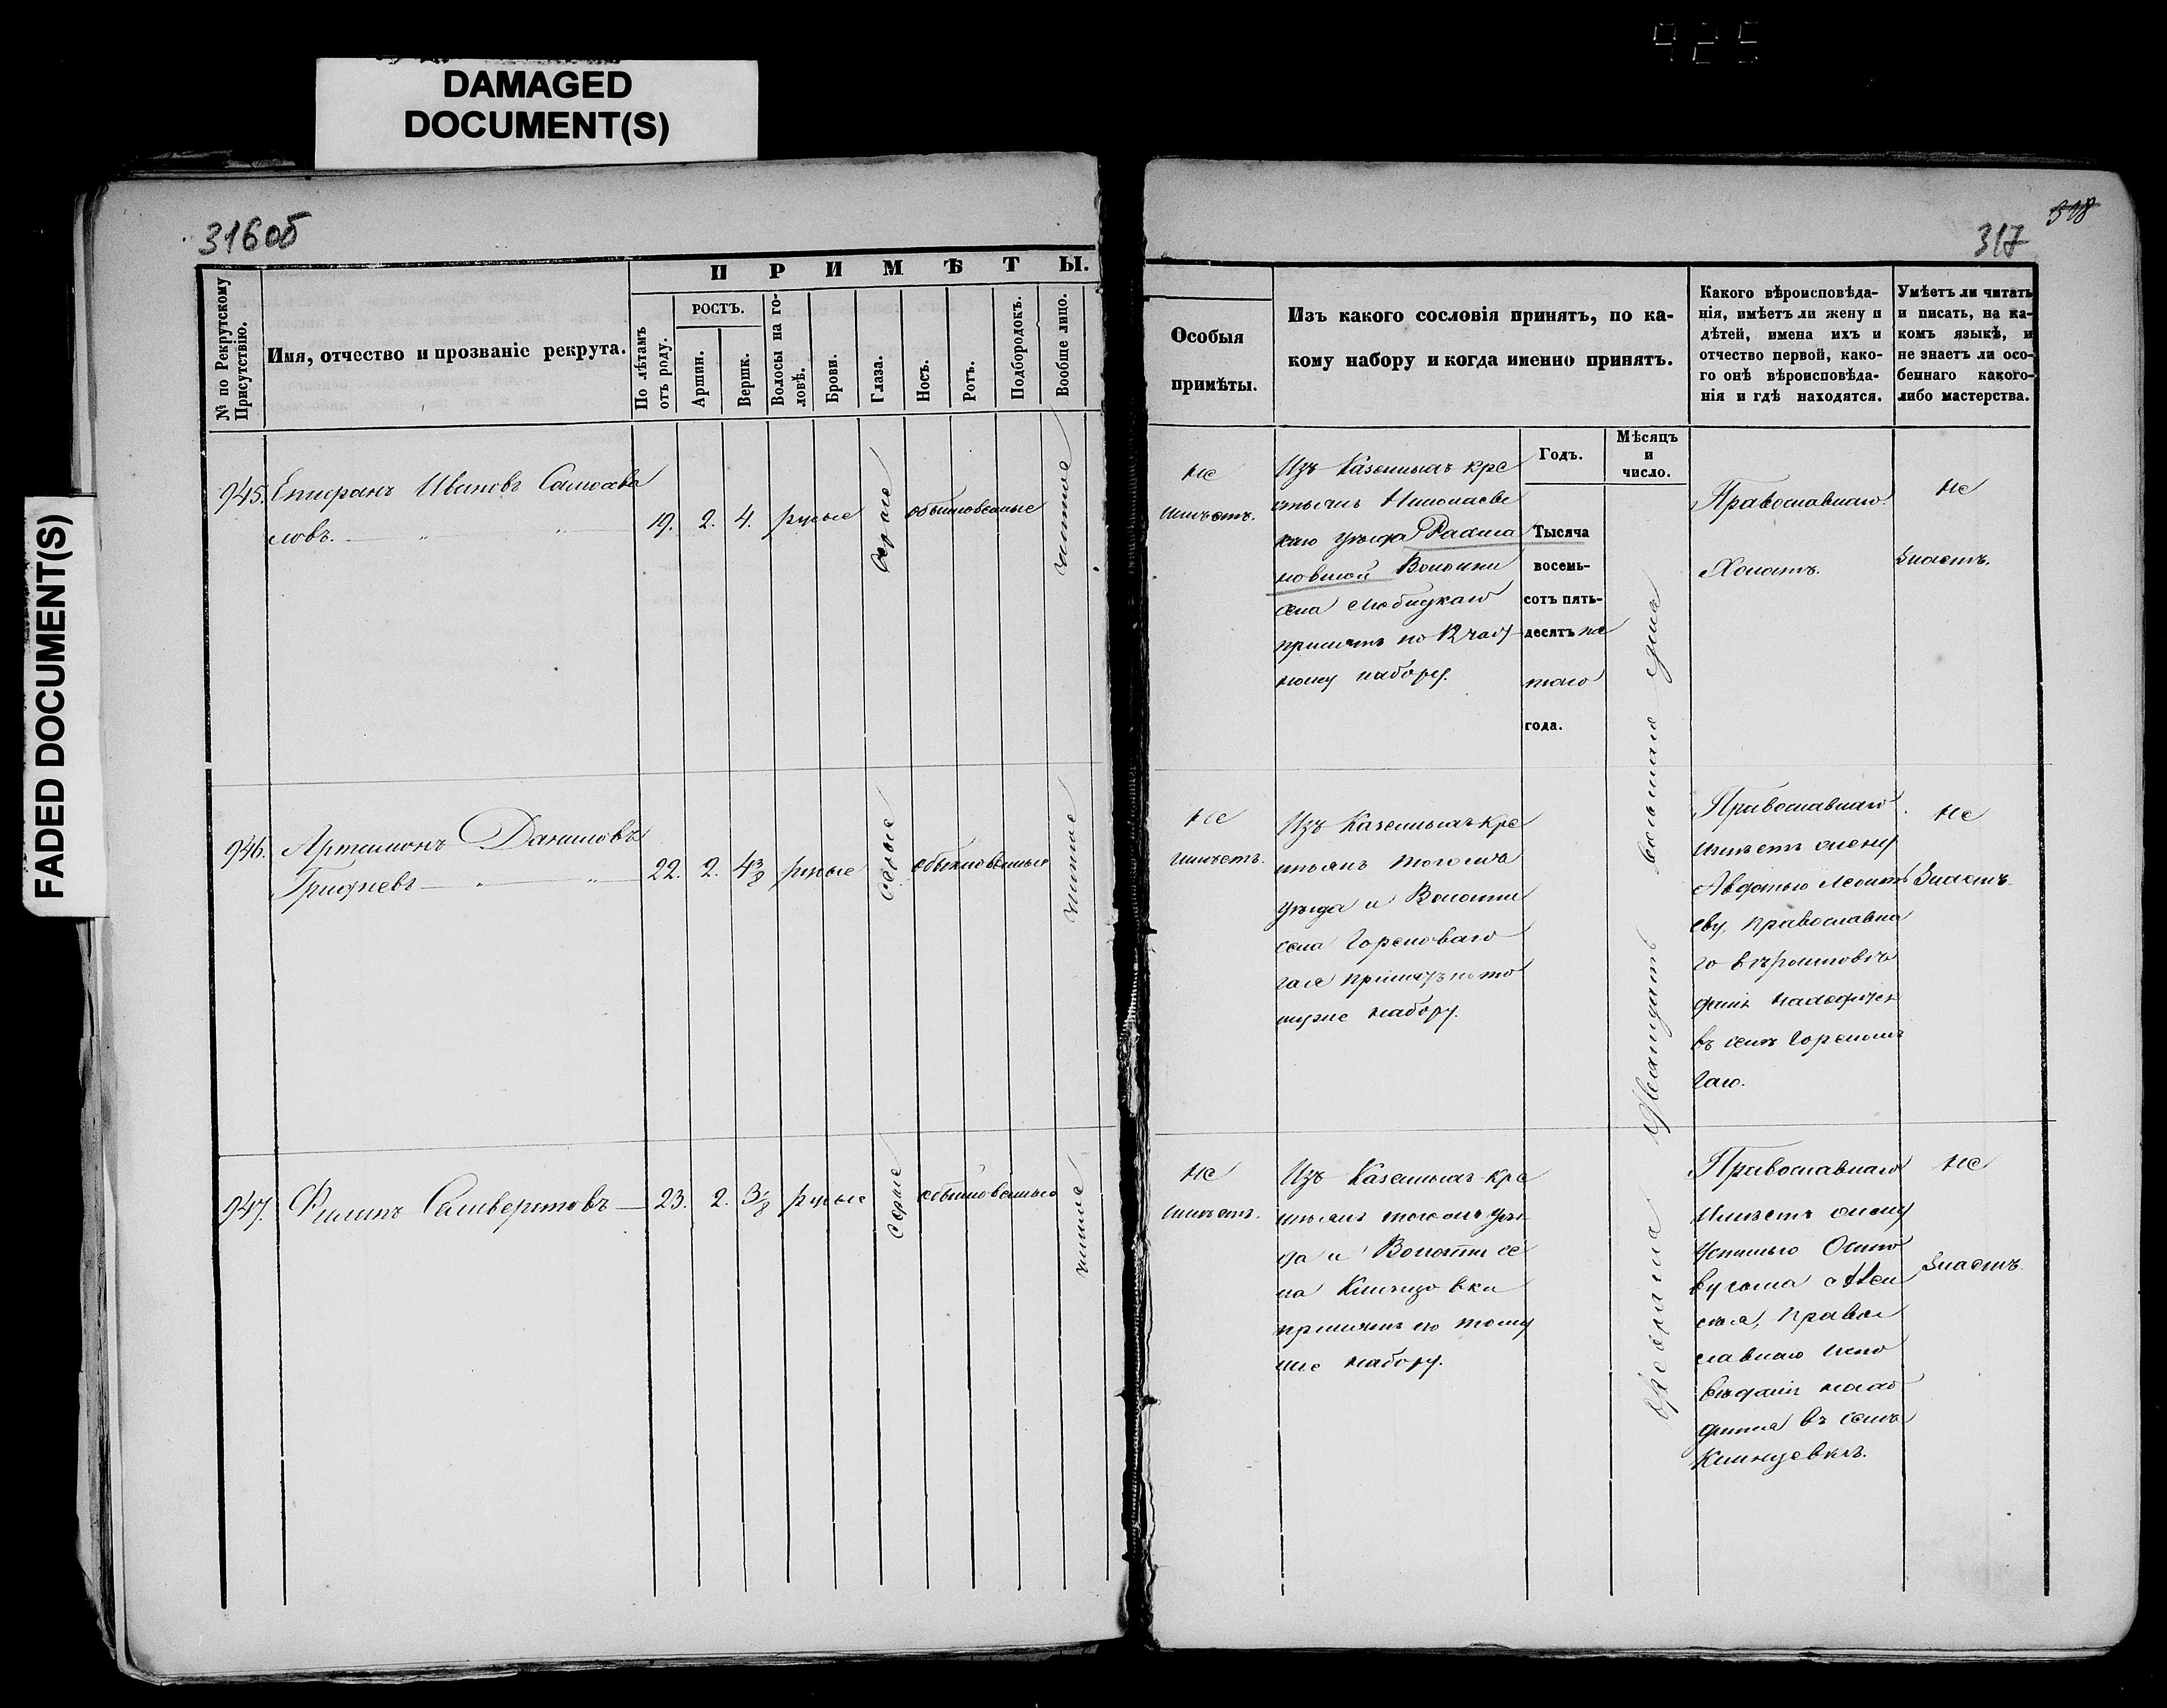 925
DAMAGED
DOCUMENT(S)
FADED DOCUMENT(S)
316об
318
317
№ по Рекрутскому Присутствію.
Имя, отчество и прозваніе рекрута.
ПРИМѢТЫ.
По лѣтамъ отъ роду.
РОСТЪ.
Аршин.
Вершк.
Волосы на головѣ.
Брови.
Глаза.
Носъ.
Ротъ.
Подбородокъ.
Вообще лицо.
Особыя
примѣты.
Изъ какого сословія принятъ, по ка-
кому набору и когда именно принятъ.
Какого вѣроисповѣда-
нія, имѣетъ ли жену и
дѣтей, имена ихъ и
отчество первой, како-
го онѣ вѣроисповѣда-
нія и гдѣ находятся.
Умѣетъ ли читать
и писать, на ка-
комъ языкѣ, и
не знаетъ ли осо-
беннаго какого-
либо мастерства.
Годъ.
Мѣсяцъ
и
число.
945. Ивановъ
ловъ.
19. 2. 4. русые
сѣрые
обыкновенные
чистое
не
имѣетъ.
Изъ Казенныхъ кре
стьянъ Николаевс
каго уѣзда
Волости
села Любицкаго
принятъ по 12 част
ному набору.
Тысяча
восемь-
сотъ пять-
десятъ пя
таго
года.
Февраля двадцать
Православнаго.
Холостъ.
не
знаетъ.
946. Артамонъ Даниловъ
Гридневъ
22. 2. 4 3/8 русые
сѣрые
обыкновенные
чистое
не
имѣетъ.
Изъ Казенныхъ кре
стьянъ тогожъ
уѣзда и Волости
села
принятъ по то
муже набору.
Православнаго
имѣетъ жену
Авдотью Леонть
еву, православна
го вѣроисповѣ
данія находится
въ селѣ
не
знаетъ.
947. Филипъ Селиверстовъ
23. 2. 3 1/8 русые
сѣрые
обыкновенные
чистое
не
имѣетъ.
Изъ Казенныхъ кре
стьянъ тогожъ уѣз
да и Волости се
ла
принятъ по тому
же набору.
Православнаго
Имѣетъ жену
Устинью Осипо
ву
правос
лавнаго испо
вѣданія нахо
дится въ селѣ
не
знаетъ.